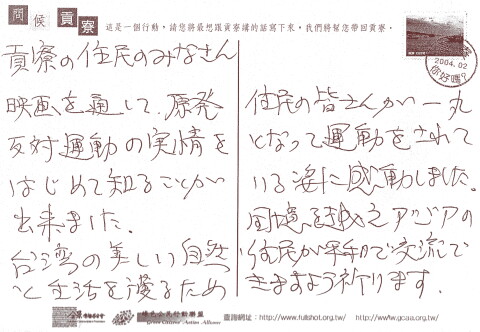 問候貢寮
這是一個行動，請您將最想跟貢寮講的話寫下來，我們將幫您帶回貢寮。
2004.02
你好嗎?
貢寮の住民のみなさん
映画を通して、原発
反対運動の実情を
はじめて知ることが
出来ました。
台湾の美しい自然
と生活を護るため
住民の皆さんが一丸
となって運動をされて
いる姿に感動しました。
国境を越えアジアの
住民が平和で交流で
きますよう祈ります。
綠色公民行動聯盟
Green Citizens' Action Alliance
查詢網址：http://www.fullshot.org.tw/ http://www.gcaa.org.tw/